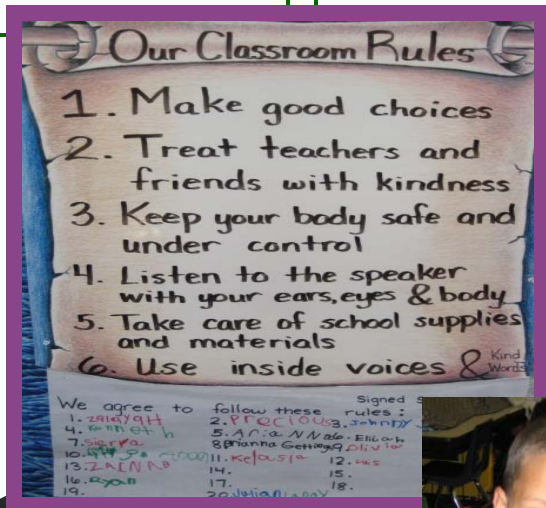 Our Classroom Rules
1. Make good choices
2. Treat teachers and
friends with kindness
3. Keep your body safe and
under control
4. Listen to the speaker
with your ears, eyes & body
5. Take care of school supplies
and materials
6. Use inside voices & Kind Words
Signed
We agree to follow these rules:
1. 2. Precious 3. Johnny
4. Kenneth 5. Arianna 6. Elijah
7. Sierra 8. Brianna 9. Olivia
10. 11. Kelasia 12.
13. ZAINAB 14. 15.
16. Ryan 17. 18.
19. 20. Julian